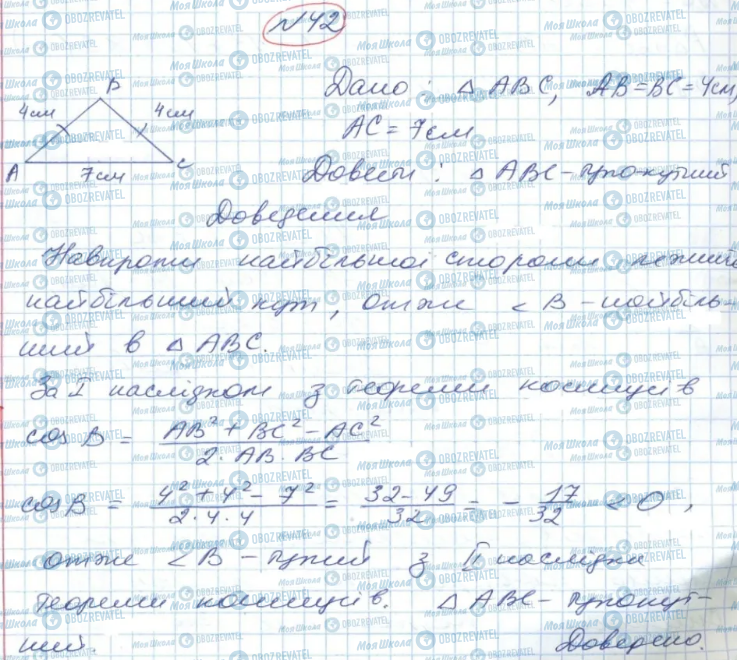 №42
B
4см 4см
A C
7см
Дано: △ABC, AB=BC=4см,
AC=7см
Довести: △ABC-тупокутний
Доведення
Навпроти найбільшої сторони лежить
найбільший кут, отже ∠B-найбіль-
ший в △ABC.
За I наслідком з теореми косинусів
cos B = (AB² + BC² - AC²) / (2·AB·BC)
cos B = (4² + 4² - 7²) / (2·4·4) = (32-49) / 32 = -17/32 < 0,
отже ∠B-тупий з II наслідка
теореми косинусів. △ABC-тупокут-
ний. Доведено.